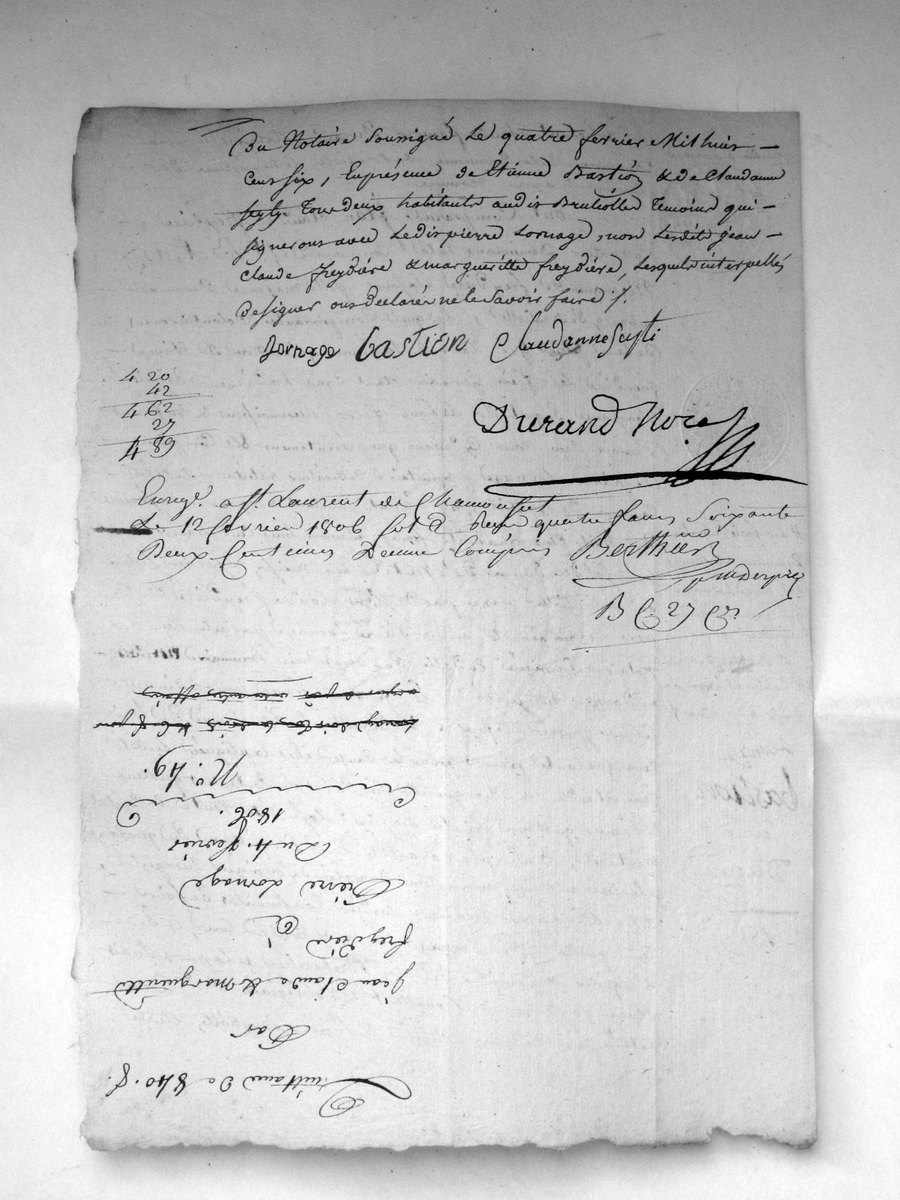 Du Notaire soussigné le quatre fevrier Mil huit
cent six, En présence de Etienne Bastion & de Claudanne
seyty Tous deux habitants audit Brulliolles Temoins qui
signeront avec Ledit pierre Lornage, non lesdits jean
claude freydière & margueritte freydière, Lesquels interpellés
De signer ont declarés ne le savoir faire /.
Lornage bastion Claudanne Seyti
420
42
462
27
489
Durand Nore
Enregé. a St. Laurent de Chamousset
Le 12 fevrier 1806 reçu quatre francs Soixante
Deux Centimes Decime Compris Berthier
B C 27 C
Quittance De 840. f.
Par
jean claude & margueritte
freydière
à
Pierre Lornage
Du 4. fevrier
1806.
No. 49.